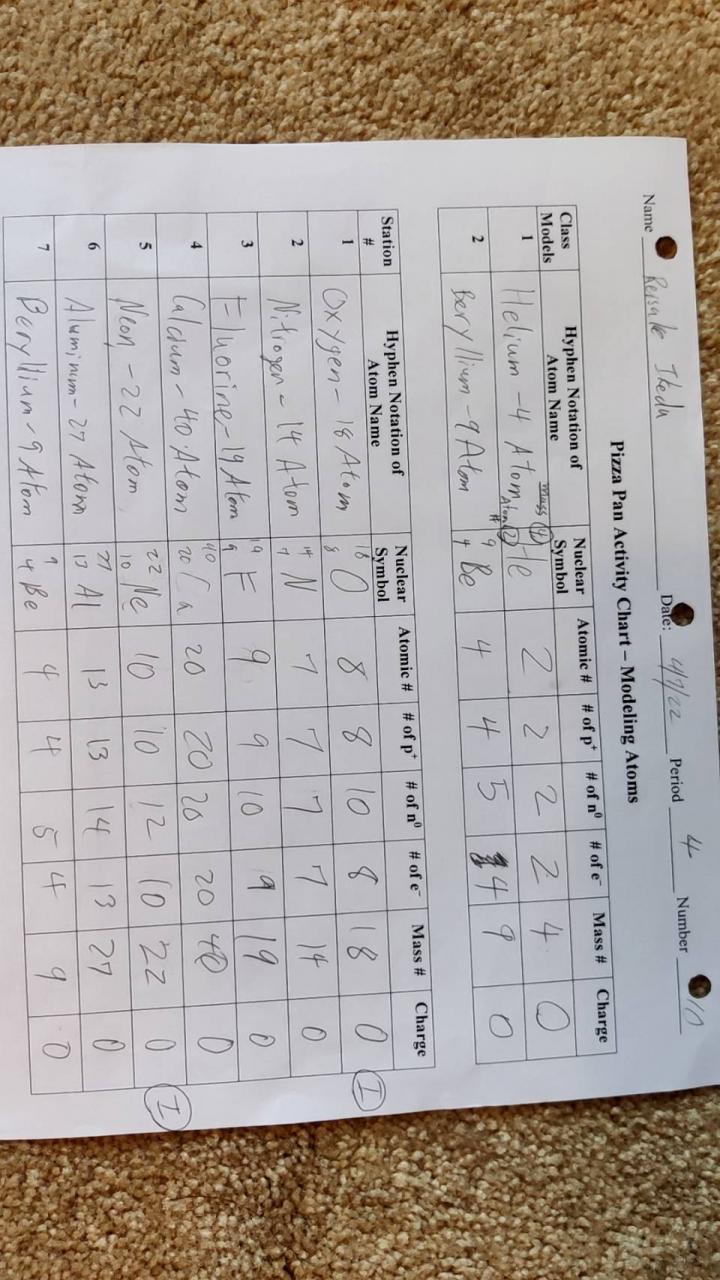 Name Ikeda Date: 4/7/22 Period 4 Number 10
Pizza Pan Activity Chart – Modeling Atoms
Class Models Hyphen Notation of Atom Name Nuclear Symbol Atomic # # of p⁺ # of n⁰ # of e⁻ Mass # Charge
1 Helium - 4 Atom Mass 4 Atom # 2 He 2 2 2 2 4 0
2 Beryllium - 9 Atom 9 4 Be 4 4 5 4 9 0
Station # Hyphen Notation of Atom Name Nuclear Symbol Atomic # # of p⁺ # of n⁰ # of e⁻ Mass # Charge
1 Oxygen - 18 Atom 8 O 8 8 10 8 18 0 I
2 Nitrogen - 14 Atom 14 7 N 7 7 7 7 14 0
3 Fluorine - 19 Atom 19 9 F 9 9 10 19 0
4 Calcium - 40 Atom 40 20 Ca 20 20 20 20 40 0
5 Neon - 22 Atom 22 10 Ne 10 10 12 10 22 0 I
6 Aluminum - 27 Atom 27 13 Al 13 13 14 13 27 0
7 Beryllium - 9 Atom 9 4 Be 4 4 5 4 9 0